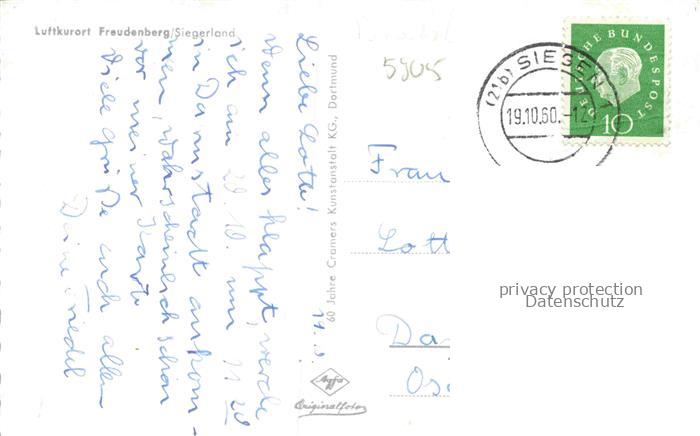 Luftkurort Freudenberg/Siegerland
Liebe Lotte!
Wenn alles klappt, werde
ich am 20. 10. um 11 20
in Darmstadt ankom-
men, wahrscheinlich schon
vor meiner Karte.
Viele Grüße euch allen
Deine Friedel
60 Jahre Cramers Kunstanstalt KG., Dortmund
Agfa
Originalfoto
5905
(21b) SIEGEN 1
19.10.60.-12
DEUTSCHE BUNDESPOST
10
Frau
Lott
Da
privacy protection
Datenschutz